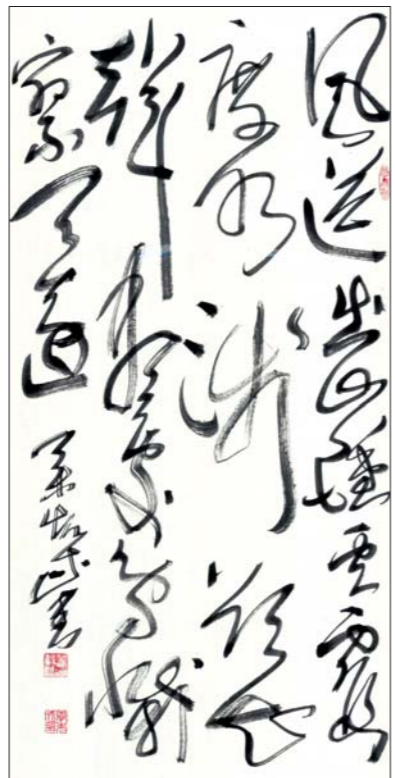 風送出山鐘雲霞
度水淺欲知
聲盡處鳥滅
寥天遠